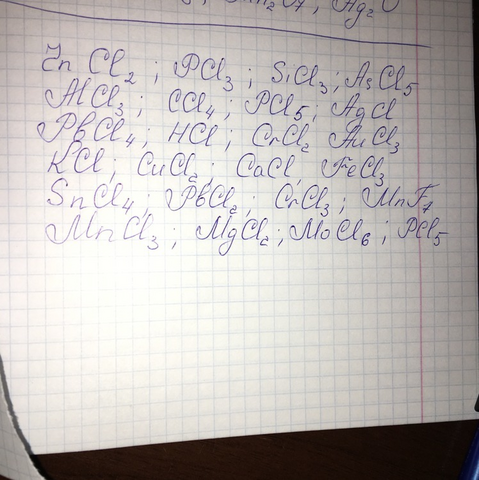 Mn₂O7, Ag₂O
ZnCl₂ ; PCl₃ ; SiCl₃ ; AsCl₅
AlCl₃ ; CCl₄ ; PCl₅ ; AgCl
PbCl₄ ; HCl ; CrCl₂ AuCl₃
KCl ; CuCl₂ ; CaCl, FeCl₃
SnCl₄ ; PbCl₂ ; CrCl₃ ; MnF₇
MnCl₃ ; MgCl₂ ; MoCl₆ ; PCl₅